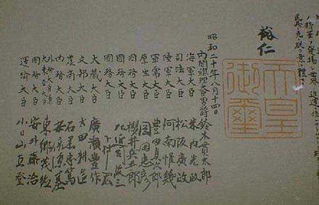 裕仁
天皇御璽
昭和二十年八月十四日
内閣總理大臣男爵鈴木貫太郎
海軍大臣 米内光政
司法大臣 松阪廣政
陸軍大臣 阿南惟幾
軍需大臣 豊田貞次郎
厚生大臣 岡田忠彦
國務大臣 櫻井兵五郎
國務大臣 左近司政三
國務大臣 下村宏
大藏大臣 廣瀬豊作
文部大臣 太田耕造
農商大臣 石黒忠篤
内務大臣 安倍源基
東郷茂徳
國務大臣 安井藤治
運輸大臣 小日山直登